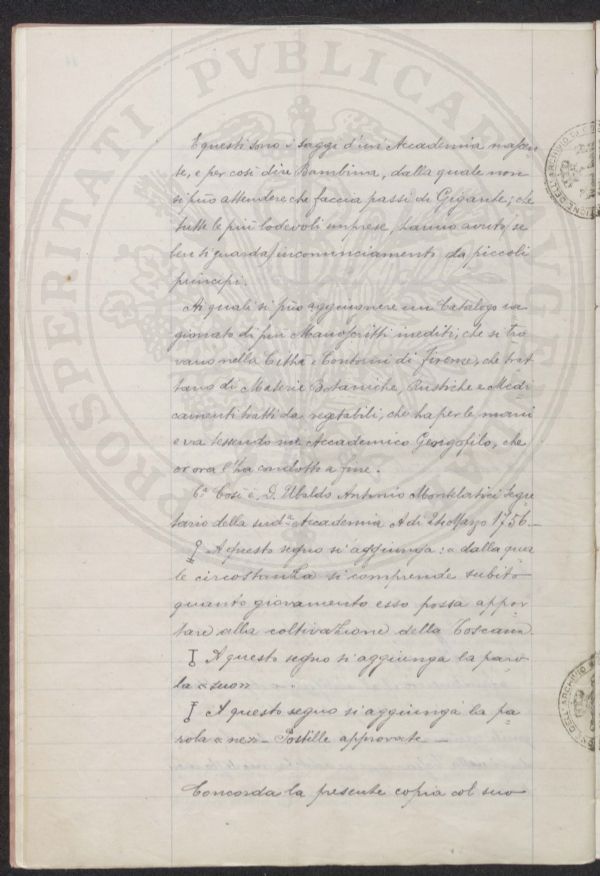 E questi sono i saggi d'un' Accademia nascen
te, e per così dire Bambina, dalla quale non
si può attendere che faccia passi di Gigante; che
tutte le più lodevoli imprese, hanno avuto /se
ben si guarda/ incominciamenti da piccoli
principi.
Ai quali si può aggiungere un Catalogo ra
gionato di più Manoscritti inediti, che si tro
vano nella Città e Contorni di Firenze, che trat
tano di Materie Botaniche, Rustiche e Medi
camenti tratti da vegetabili, che ha per le mani
e va tessendo un Accademico Georgofilo, che
or ora l'ha condotto a fine.
Così è, D. Ubaldo Antonio Montelatici Segre
tario della sudª Accademia A di 24 Marzo 1756.—
A questo segno si aggiunga: « dalla qua
le circostanza si comprende subito
quanto giovamento esso possa appor
tare alla coltivazione della Toscana.
A questo segno si aggiunga la paro
la « suo »
A questo segno si aggiunga la pa
rola « ne » — Postille approvate —
Concorda la presente copia col suo
PROSPERITATI PVBLICAE AVGENDAE